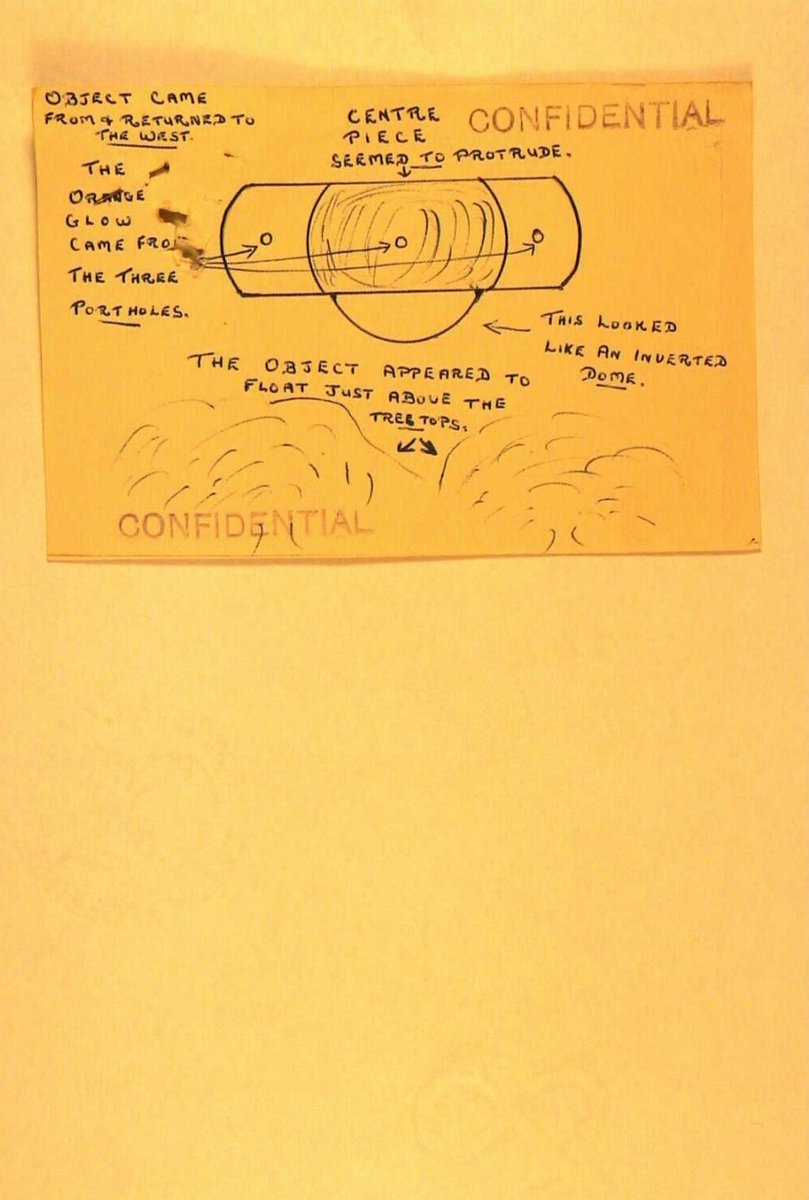 OBJECT CAME
FROM & RETURNED TO
THE WEST.
THE
ORANGE
GLOW
CAME FRO
THE THREE
PORTHOLES.
CENTRE
PIECE
SEEMED TO PROTRUDE.
CONFIDENTIAL
THIS LOOKED
LIKE AN INVERTED
DOME.
THE OBJECT APPEARED TO
FLOAT JUST ABOVE THE
TREETOPS.
CONFIDENTIAL